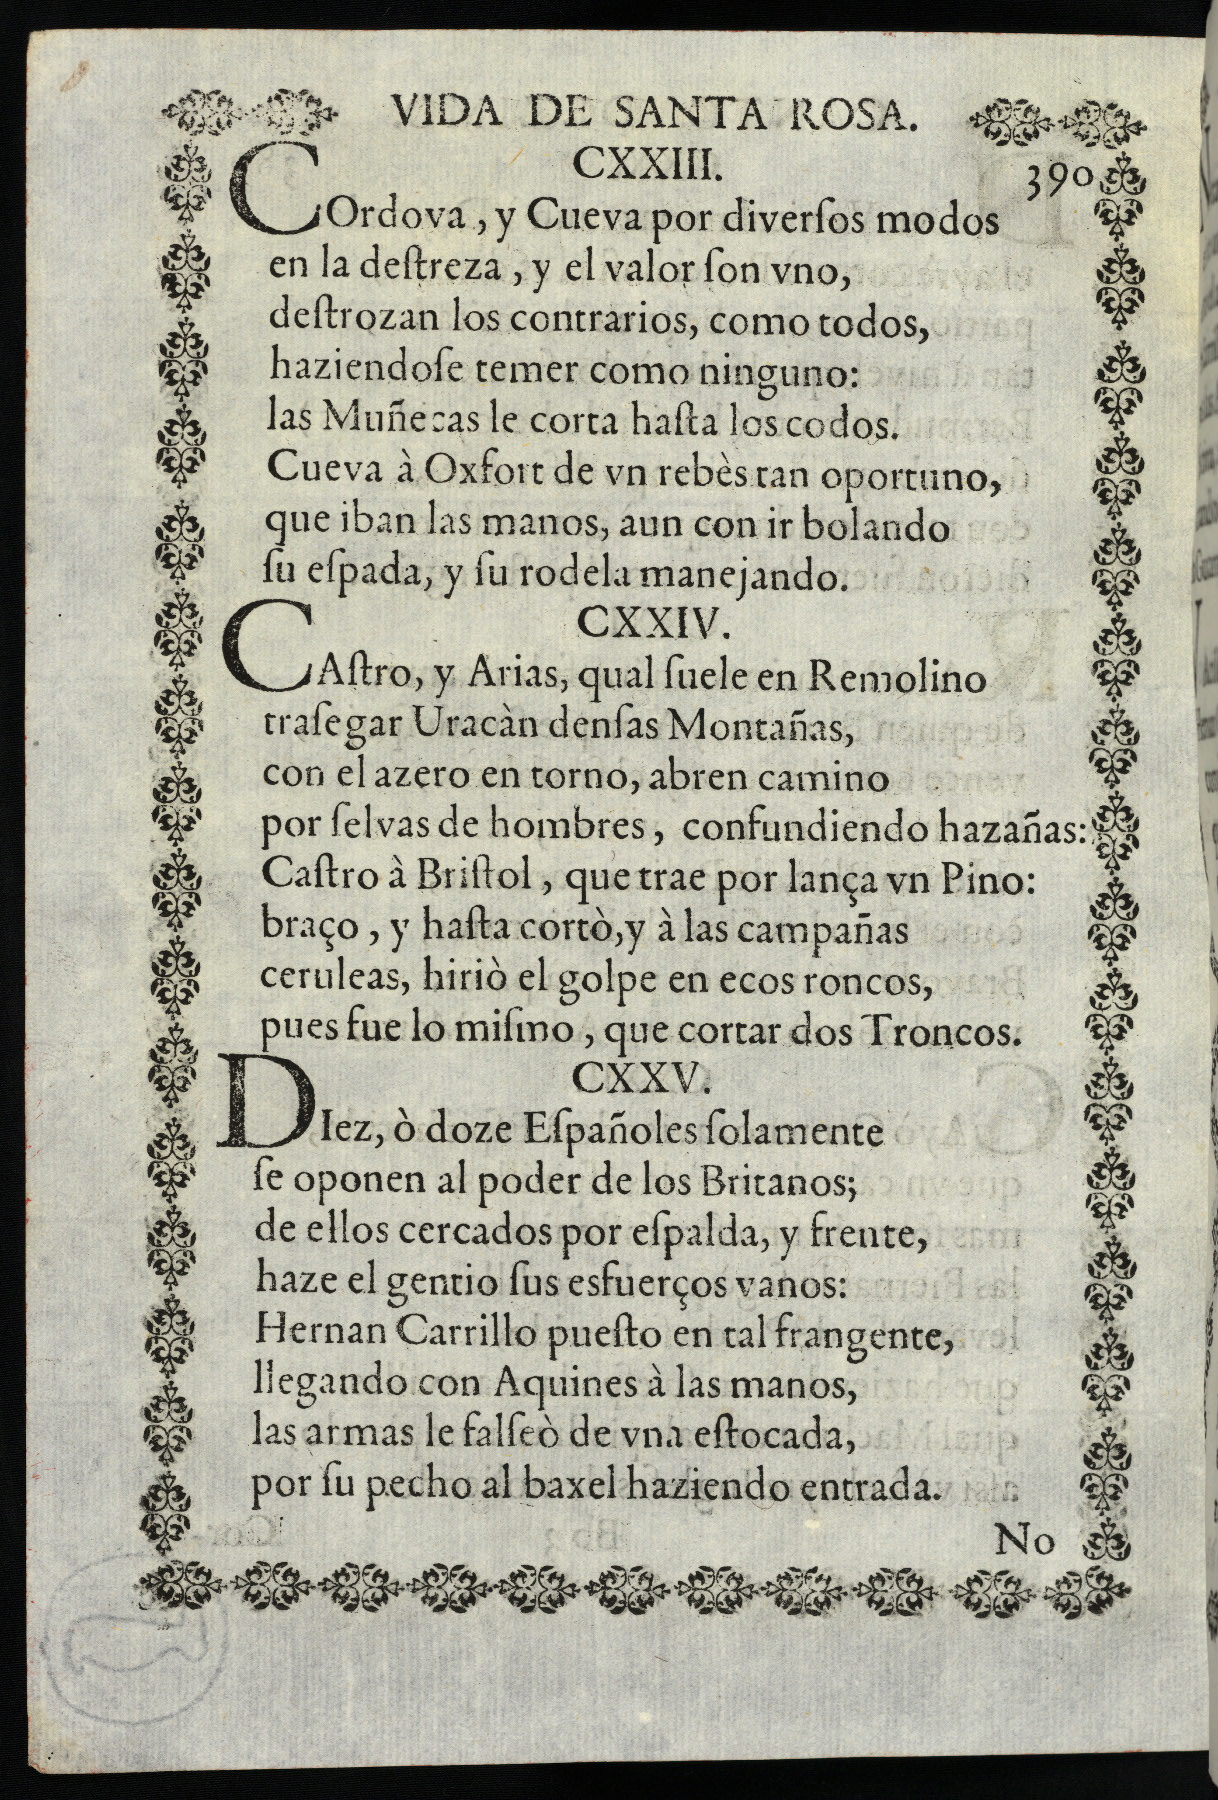 VIDA DE SANTA ROSA.
CXXIII.
390
COrdova, y Cueva por diverſos modos
en la deſtreza, y el valor ſon vno,
deſtrozan los contrarios, como todos,
haziendoſe temer como ninguno:
las Muñecas le corta haſta los codos.
Cueva à Oxfort de vn rebès tan oportuno,
que iban las manos, aun con ir bolando
ſu eſpada, y ſu rodela manejando.
CXXIV.
CAſtro, y Arias, qual ſuele en Remolino
traſegar Uracàn denſas Montañas,
con el azero en torno, abren camino
por ſelvas de hombres, confundiendo hazañas:
Caſtro à Briſtol, que trae por lança vn Pino:
braço, y haſta cortò, y à las campañas
ceruleas, hiriò el golpe en ecos roncos,
pues fue lo miſmo, que cortar dos Troncos.
CXXV.
DIez, ò doze Eſpañoles ſolamente
ſe oponen al poder de los Britanos;
de ellos cercados por eſpalda, y frente,
haze el gentio ſus esfuerços vanos:
Hernan Carrillo pueſto en tal frangente,
llegando con Aquines à las manos,
las armas le falſeò de vna eſtocada,
por ſu pecho al baxel haziendo entrada.
No